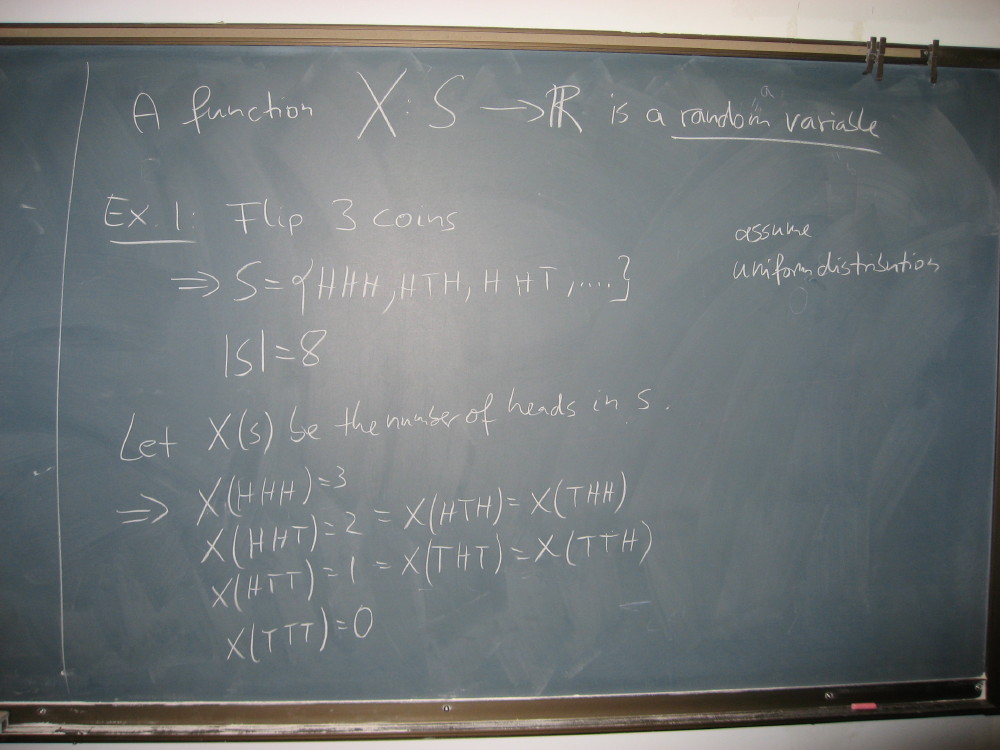 A function X: S → ℝ is a random variable
Ex. 1: Flip 3 coins
assume
uniform distribution
⇒ S = {HHH, HTH, HHT, ....}
|S| = 8
Let X(s) be the number of heads in s.
⇒ X(HHH) = 3
X(HHT) = 2 = X(HTH) = X(THH)
X(HTT) = 1 = X(THT) = X(TTH)
X(TTT) = 0